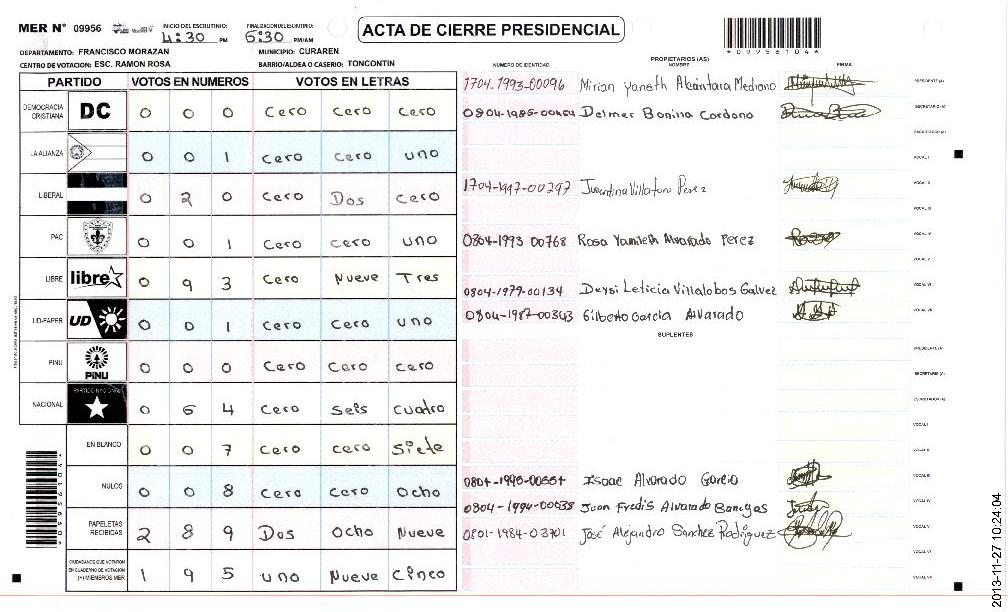 MER N° 09956 INICIO DEL ESCRUTINIO: 4:30 PM FINALIZACION DEL ESCRUTINIO: 6:30 PM/AM
ACTA DE CIERRE PRESIDENCIAL
*09956104*
DEPARTAMENTO: FRANCISCO MORAZAN MUNICIPIO: CURAREN
CENTRO DE VOTACION: ESC. RAMON ROSA BARRIO/ALDEA O CASERIO: TONCONTIN
PARTIDO VOTOS EN NUMEROS VOTOS EN LETRAS
DEMOCRACIA CRISTIANA DC 0 0 0 Cero Cero Cero
LA ALIANZA 0 0 1 Cero Cero uno
LIBERAL 0 2 0 Cero Dos Cero
PAC 0 0 1 Cero cero uno
LIBRE libre 0 9 3 Cero Nueve Tres
UD-FAPER UD 0 0 1 Cero Cero uno
PINU PiNU 0 0 0 Cero Cero cero
NACIONAL PARTIDO NACIONAL 0 6 4 Cero seis cuatro
EN BLANCO 0 0 7 Cero cero siete
NULOS 0 0 8 Cero cero ocho
PAPELETAS RECIBIDAS 2 8 9 Dos Ocho Nueve
CIUDADANOS QUE VOTARON EN CUADERNO DE VOTACION (+) MIEMBROS MER 1 9 5 uno Nueve Cinco
*09956104*
NUMERO DE IDENTIDAD PROPIETARIOS (AS) NOMBRE FIRMA
1704-1993-00096 Mirian Yaneth Alcantara Medrano PRESIDENTE (A)
Delmer Bonilla Cordono SECRETARIO (A)
ESCRUTADOR (A)
VOCAL I
1704-1997-00297 Juventina Villatoro Perez VOCAL II
VOCAL III
0804-1993 00768 Rosa Yamileth Alvarado Perez VOCAL IV
VOCAL V
0804-1979-00134 Deysi Leticia Villalobos Galvez VOCAL VI
0804-1987-00343 Gilberto Garcia Alvarado VOCAL VII
SUPLENTES
PRESIDENTE (A)
SECRETARIO (A)
ESCRUTADOR (A)
VOCAL I
VOCAL II
Isaac Alvarado Garcia VOCAL III
0804-1994-00038 Juan Fredis Alvarado Banegas VOCAL IV
0801-1984-03701 José Alejandro Sanchez Rodriguez VOCAL V
VOCAL VI
VOCAL VII
2013-11-27 10:24:04